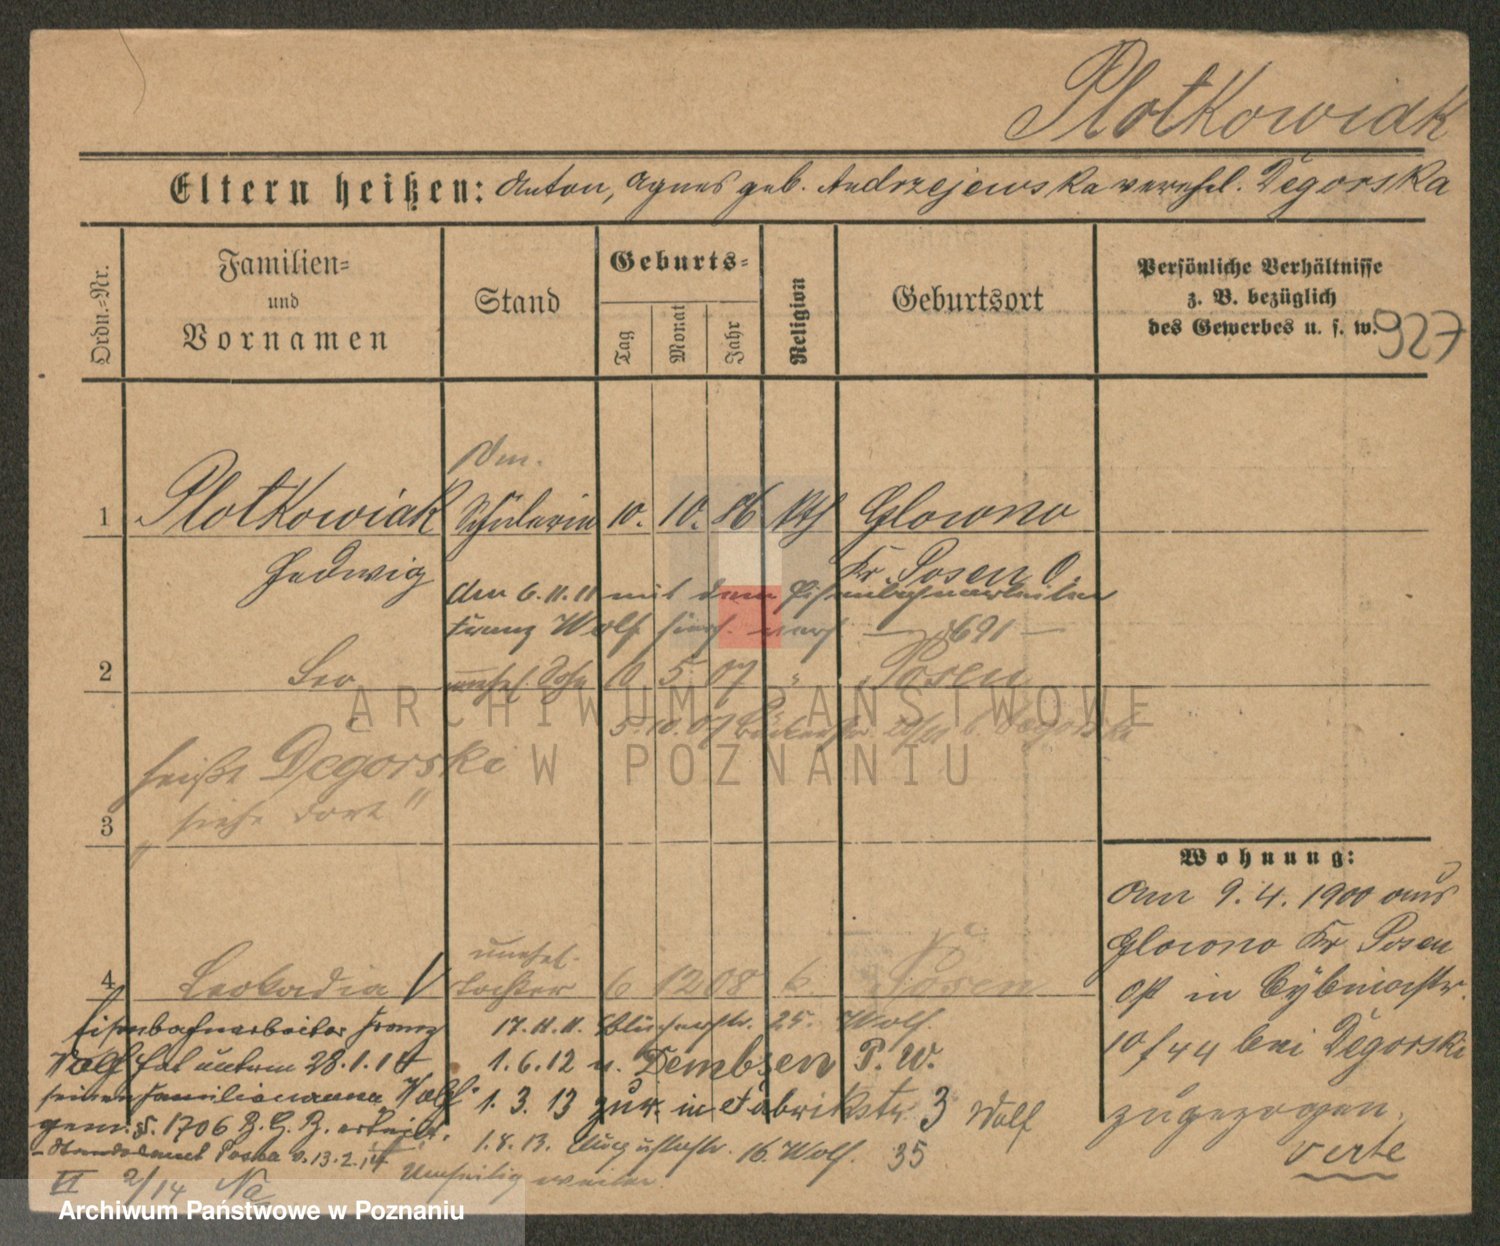 Plotkowiak
Eltern heißen: Anton, Agnes geb. Andrzejewska verehel. Degorska
Ordn.-Nr.
Familien- und Vornamen
Stand
Geburts-
Tag
Monat
Jahr
Religion
Geburtsort
Persönliche Verhältnisse
z. B. bezüglich
des Gewerbes u. s. w.
927
1 Plotkowiak Schülerin 10. 10. 86 kth Glowno
Hedwig Kr. Posen O.
den 6.11.11 mit dem Eisenbahnarbeiter
Franz Wolf 691
2 Leo unehel. Sohn 10 5. 07 " Posen
5.10.07 20/21 b. Degorska
heißt Degorski
siehe dort "
3
4 Leokadia unehel. Tochter 6 12 08 k. Posen
Wohnung:
Am 9. 4. 1900 aus
Glowno Kr. Posen
Ost in Cybinastr.
10/44 bei Degorski
zugezogen.
verte
Eisenbahnarbeiter Franz
Wolf hat unterm 28.1.14
seinen Familiennamen Wolf
gem. § 1706 B. G. B. erteilt.
Standesamt Posen v. 13.2.14
VI 2/14
17.11.11. Blücherstr. 25. Wolf.
1.6.12 n. Dembsen P. W.
1. 3. 13 zur. in Fabrikstr. 3 Wolf
1.8.13. Augustastr. 16. Wolf. 35
Umseitig weiter.
ARCHIWUM PAŃSTWOWE
W POZNANIU
Archiwum Państwowe w Poznaniu